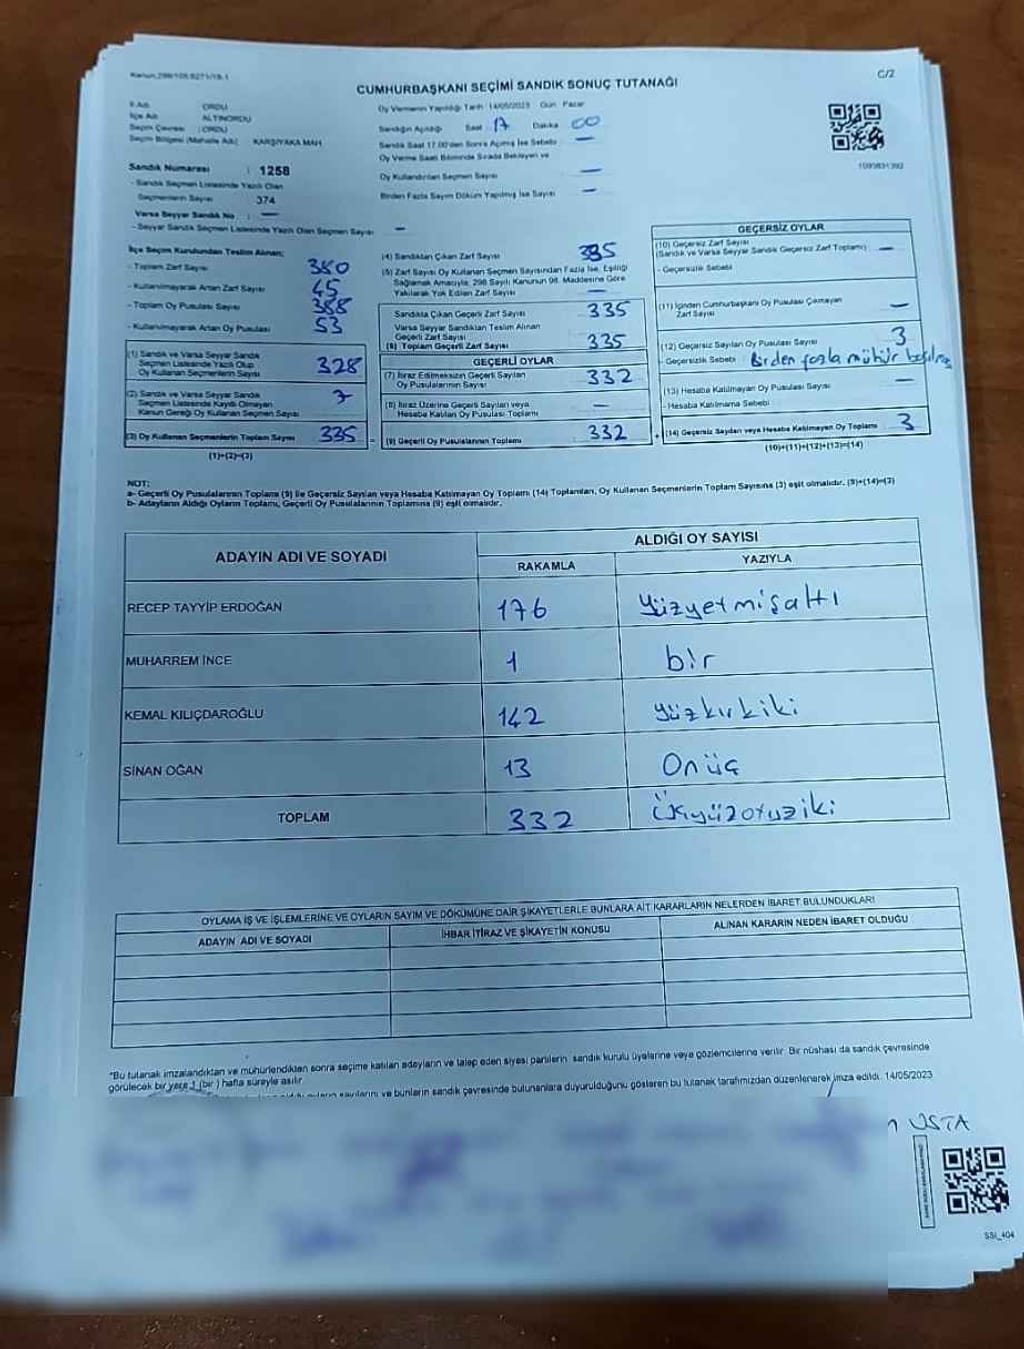 Kanun:298/105,6271/19.1
C/2
CUMHURBAŞKANI SEÇİMİ SANDIK SONUÇ TUTANAĞI
İl Adı : ORDU
İlçe Adı : ALTINORDU
Seçim Çevresi : ORDU
Seçim Bölgesi (Mahalle Adı) : KARŞIYAKA MAH
Sandık Numarası : 1258
- Sandık Seçmen Listesinde Yazılı Olan
Seçmenlerin Sayısı : 374
Varsa Seyyar Sandık No : —
- Seyyar Sandık Seçmen Listesinde Yazılı Olan Seçmen Sayısı —
Oy Vermenin Yapıldığı Tarih : 14/05/2023 Gün : Pazar
Sandığın Açıldığı Saat 17 Dakika 00
Sandık Saat 17.00'den Sonra Açılmış İse Sebebi —
Oy Verme Saati Bitiminde Sırada Bekleyen ve
Oy Kullandırılan Seçmen Sayısı —
Birden Fazla Sayım Döküm Yapılmış İse Sayısı —
İlçe Seçim Kurulundan Teslim Alınan;
- Toplam Zarf Sayısı 380
- Kullanılmayarak Artan Zarf Sayısı 45
- Toplam Oy Pusulası Sayısı 388
- Kullanılmayarak Artan Oy Pusulası 53
(1) Sandık ve Varsa Seyyar Sandık
Seçmen Listesinde Yazılı Olup
Oy Kullanan Seçmenlerin Sayısı 328
(2) Sandık ve Varsa Seyyar Sandık
Seçmen Listesinde Kaydı Olmayan
Kanun Gereği Oy Kullanan Seçmen Sayısı 7
(3) Oy Kullanan Seçmenlerin Toplam Sayısı 335
(1)+(2)=(3)
(4) Sandıktan Çıkan Zarf Sayısı 335
(5) Zarf Sayısı Oy Kullanan Seçmen Sayısından Fazla İse, Eşitliği
Sağlamak Amacıyla; 298 Sayılı Kanunun 98. Maddesine Göre
Yakılarak Yok Edilen Zarf Sayısı —
Sandıkta Çıkan Geçerli Zarf Sayısı 335
Varsa Seyyar Sandıktan Teslim Alınan
Geçerli Zarf Sayısı
(6) Toplam Geçerli Zarf Sayısı 335
GEÇERLİ OYLAR
(7) İtiraz Edilmeksizin Geçerli Sayılan
Oy Pusulalarının Sayısı 332
(8) İtiraz Üzerine Geçerli Sayılan veya
Hesaba Katılan Oy Pusulası Toplamı —
= (9) Geçerli Oy Pusulalarının Toplamı 332
1099831392
GEÇERSİZ OYLAR
(10) Geçersiz Zarf Sayısı
(Sandık ve Varsa Seyyar Sandık Geçersiz Zarf Toplamı) —
- Geçersizlik Sebebi
(11) İçinden Cumhurbaşkanı Oy Pusulası Çıkmayan
Zarf Sayısı —
(12) Geçersiz Sayılan Oy Pusulası Sayısı 3
- Geçersizlik Sebebi Birden fazla mühür basılmış
(13) Hesaba Katılmayan Oy Pusulası Sayısı —
- Hesaba Katılmama Sebebi
+ (14) Geçersiz Sayılan veya Hesaba Katılmayan Oy Toplamı 3
(10)+(11)+(12)+(13)=(14)
NOT:
a- Geçerli Oy Pusulalarının Toplamı (9) ile Geçersiz Sayılan veya Hesaba Katılmayan Oy Toplamı (14) Toplamları, Oy Kullanan Seçmenlerin Toplam Sayısına (3) eşit olmalıdır. (9)+(14)=(3)
b- Adayların Aldığı Oyların Toplamı, Geçerli Oy Pusulalarının Toplamına (9) eşit olmalıdır.
ADAYIN ADI VE SOYADI ALDIĞI OY SAYISI
RAKAMLA YAZIYLA
RECEP TAYYİP ERDOĞAN 176 yüzyetmişaltı
MUHARREM İNCE 1 bir
KEMAL KILIÇDAROĞLU 142 yüzkırkiki
SİNAN OĞAN 13 Onüç
TOPLAM 332 Üçyüzotuziki
OYLAMA İŞ VE İŞLEMLERİNE VE OYLARIN SAYIM VE DÖKÜMÜNE DAİR ŞİKAYETLERLE BUNLARA AİT KARARLARIN NELERDEN İBARET BULUNDUKLARI
ADAYIN ADI VE SOYADI İHBAR İTİRAZ VE ŞİKAYETİN KONUSU ALINAN KARARIN NEDEN İBARET OLDUĞU
*Bu tutanak imzalandıktan ve mühürlendikten sonra seçime katılan adayların ve talep eden siyasi partilerin sandık kurulu üyelerine veya gözlemcilerine verilir. Bir nüshası da sandık çevresinde
görülecek bir yere 1 (bir) hafta süreyle asılır.
oyların sayılarını ve bunların sandık çevresinde bulunanlara duyurulduğunu gösteren bu tutanak tarafımızdan düzenlenerek imza edildi. 14/05/2023
USTA
SSİ_404